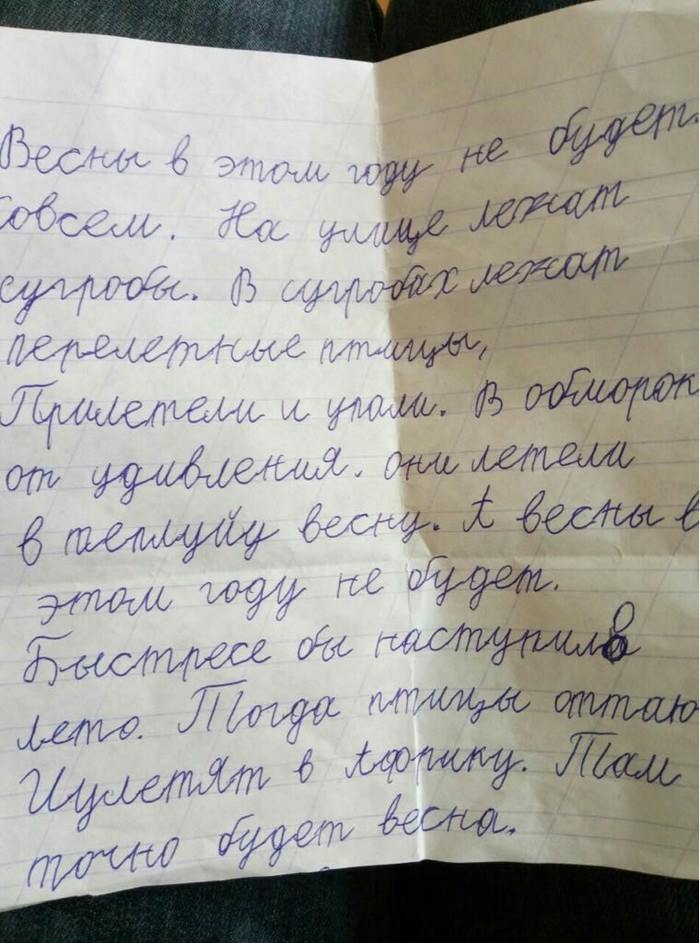 Весны в этом году не будет.
Совсем. На улице лежат
сугробы. В сугробах лежат
перелетные птицы,
Прилетели и упали. В обморок
от удивления. они летели
в теплуйу весну. А весны в
этом году не будет.
Быстресе бы наступило
лето. Тогда птицы оттаю
Иулетят в Африку. Там
точно будет весна.